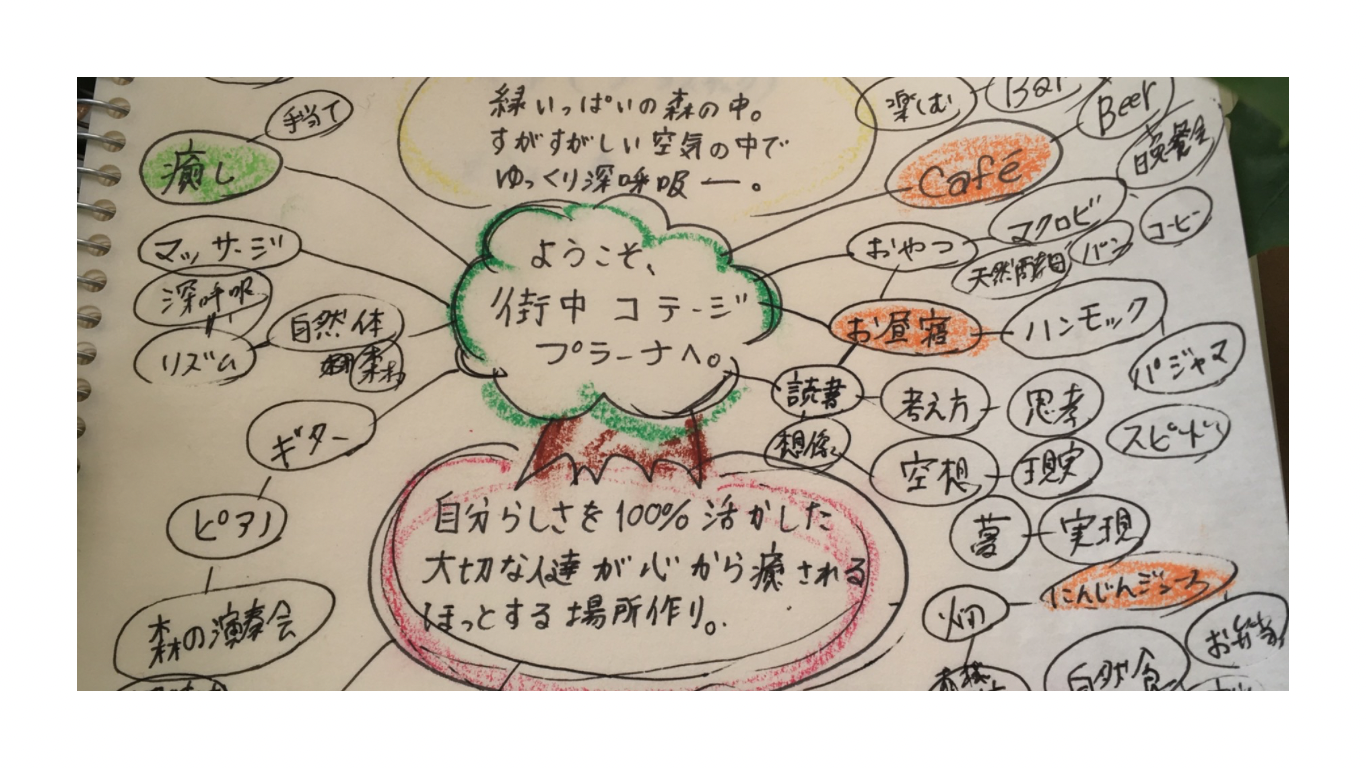 緑いっぱいの森の中。
すがすがしい空気の中で
ゆっくり深呼吸ー。
手当て
癒し
マッサージ
深呼吸
リズム
自然体
森林
ギター
ピアノ
森の演奏会
ようこそ、
街中コテージ
プラーナへ。
自分らしさを100%活かした
大切な人達が心から癒される
ほっとする場所作り。
楽しむ
Bar
Beer
Café
おやつ
マクロビ
天然酵母
パン
コーヒー
お昼寝
ハンモック
パジャマ
読書
考え方
思考
スピード
想像
空想
現実
夢
実現
畑
にんじんジュース
お弁当
自然食